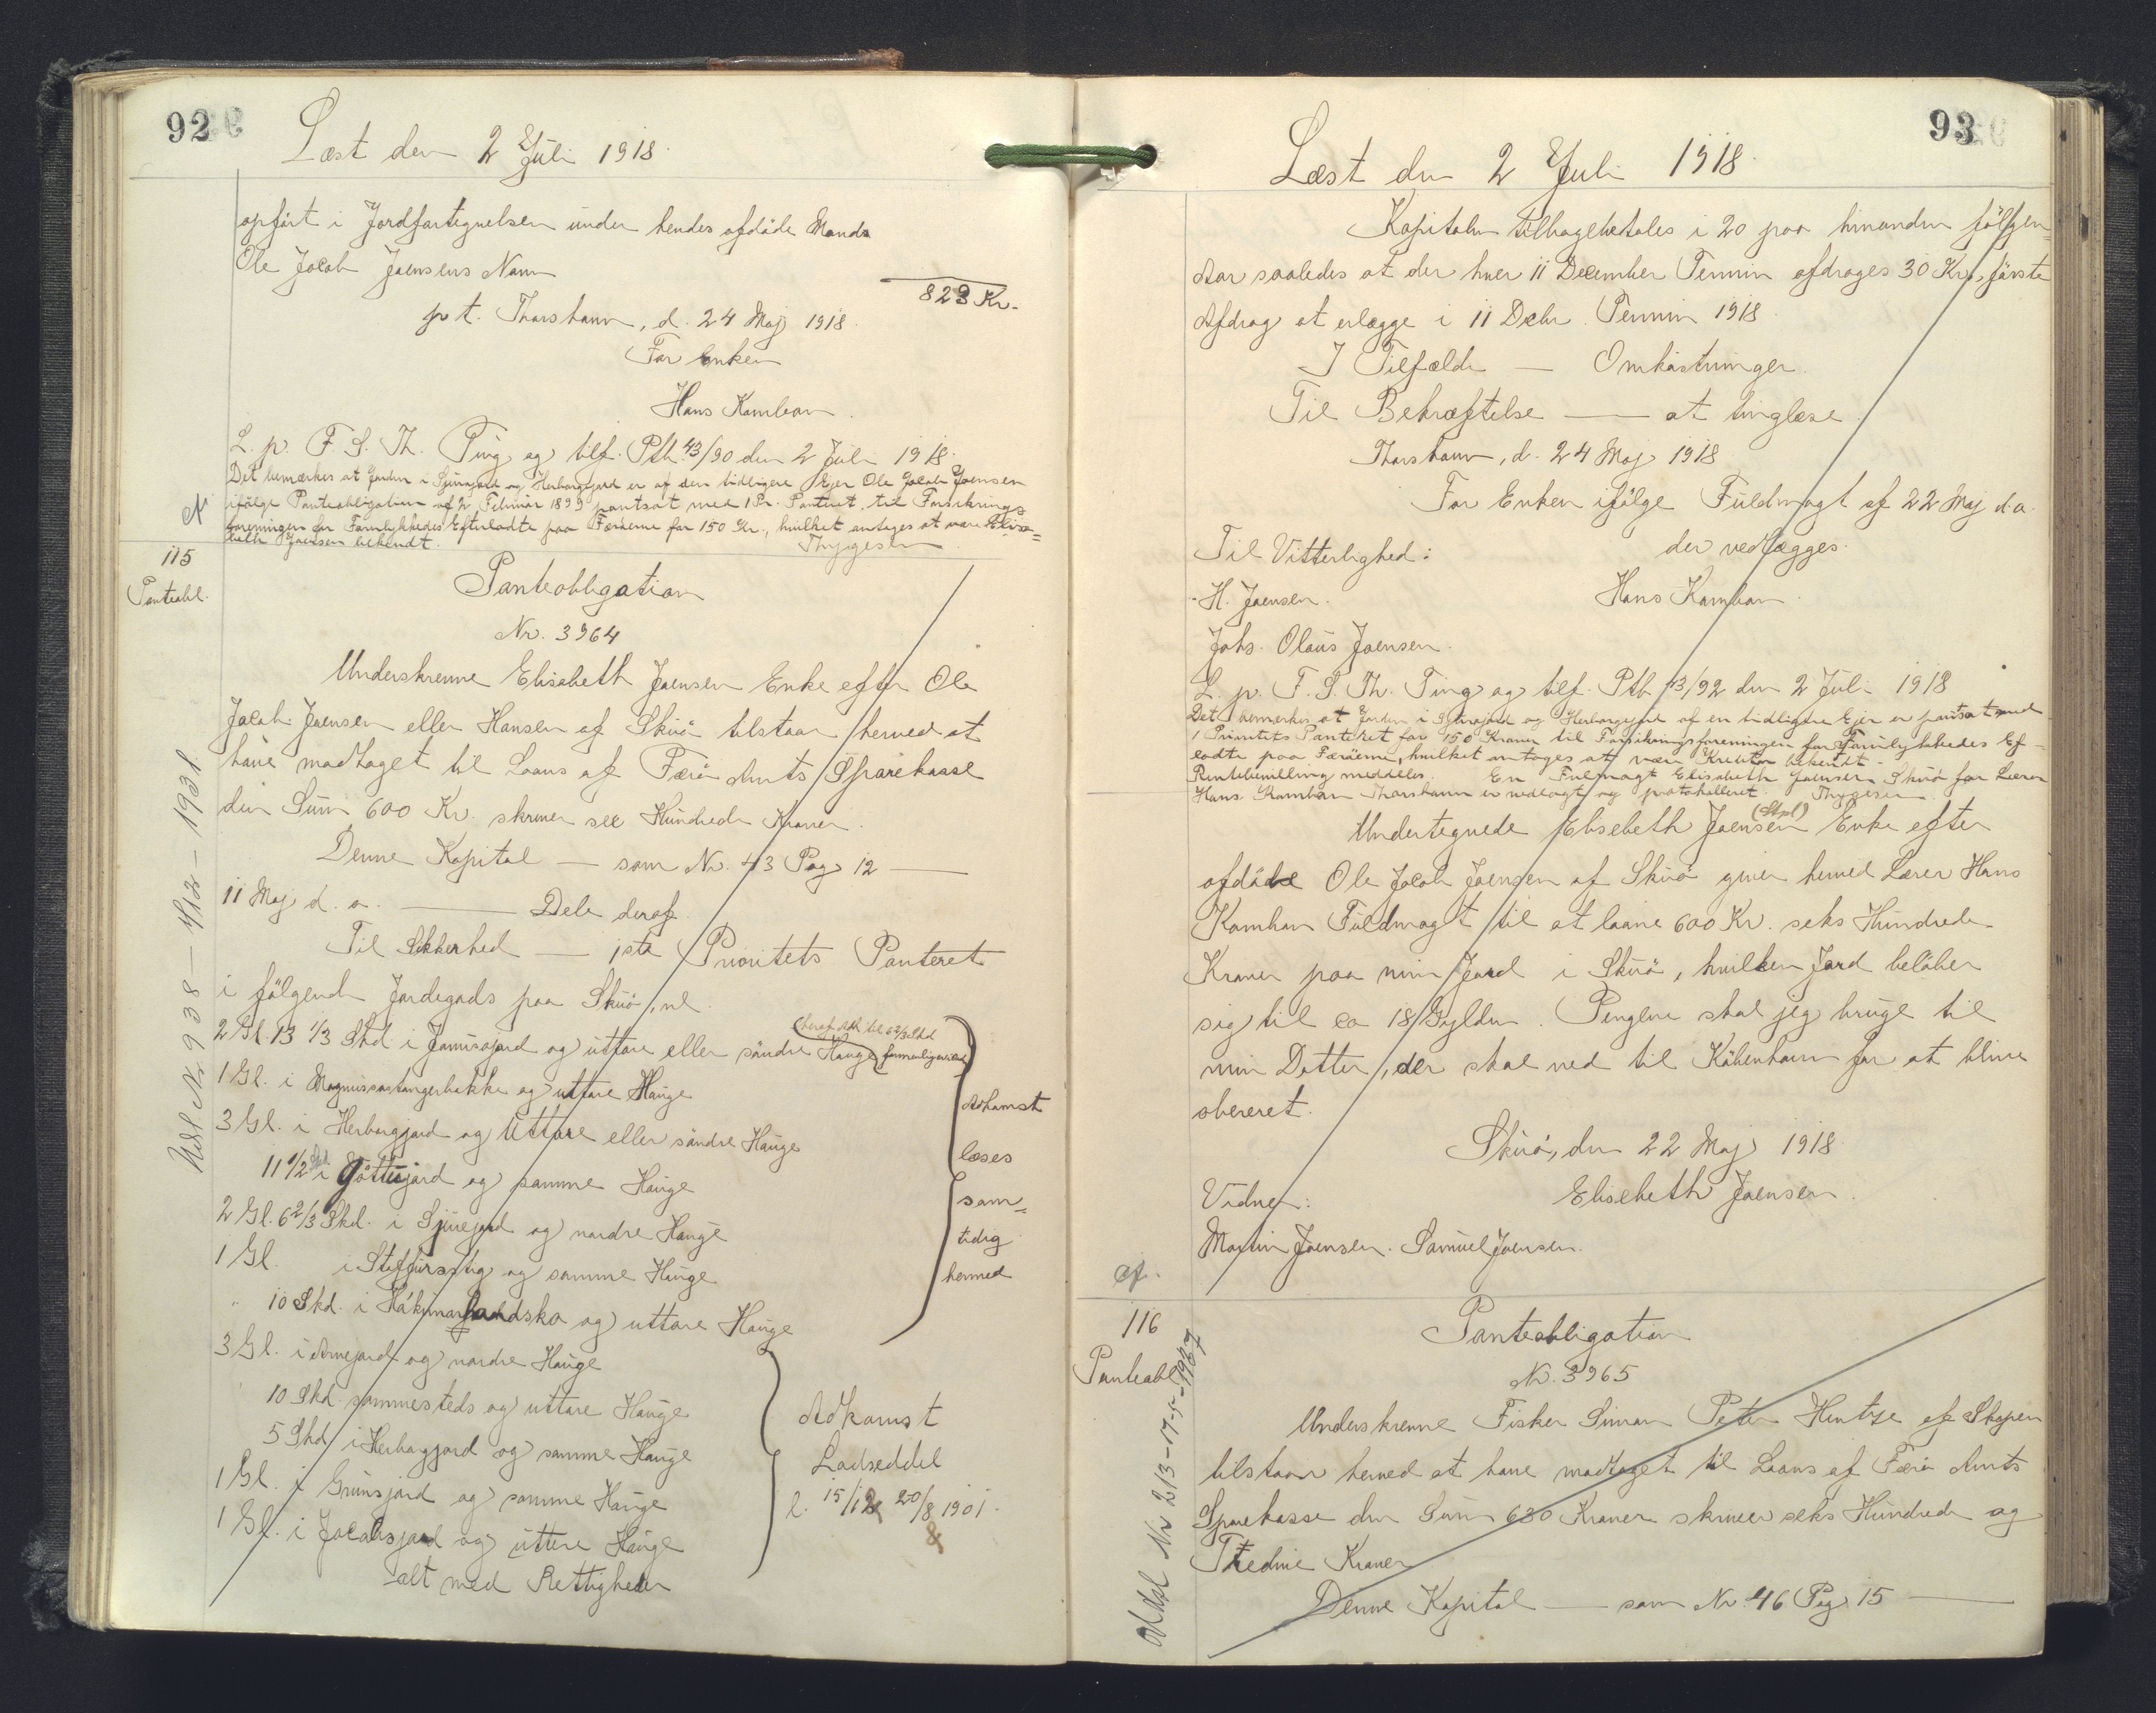 92
Læst den 2 Juli 1918.
opført i Jordfortegnelsen under hendes afdøde Mands
Ole Jacob Joensens Navn
823 Kr.
p t. Thorshavn, d. 24 Maj 1918.
For Enken
Hans Kamban.
L. p. F. S. Th. Ting og tilf. Ptb. 43/90 den 2 Juli 1918.
Det bemærkes at Jorden i Sjurajord og Herborgjord er af den tidligere Ejer Ole Jacob Joensen
ifølge Panteobligation af 2 Februar 1899 pantsat med 1 Pr. Panteret, til Forsikrings
foreningen for Forulykkedes Efterladte paa Færøerne for 150 Kr., hvilket antages at være Elisa=
beth Joensen bekendt.
Thygesen
115
Panteobl.
Panteobligation
Nr. 3964
Underskrevne Elisabeth Joensen Enke efter Ole
Jacob Joensen eller Hansen af Skuø tilstaar herved at
have modtaget til Laans af Færø Amts Sparekasse
den Sum 600 Kr. skriver sex Hundrede Kroner.
Denne Kapital — som Nr. 43 Pag 12 —
11 Maj d. a. — Dele deraf.
Til Sikkerhed — 1ste Prioritets Panteret
i følgende Jordegods paa Skuø, nl.
2 Gl. 13 1/3 Skd. i Jomisajord og uttare eller søndre Hauge
1 Gl. i Magnussastangerbakke og uttare Hauge
3 Gl. i Herborgjord og Uttare eller søndre Hauge
11 1/2 Skd i Gøttujord og samme Hauge
2 Gl. 6 2/3 Skd. i Sjurejord og nordre Hauge
1 Gl. i Steffurstig og samme Hauge
" 10 Skd. i og uttare Hauge
Adkomst
læses
sam=
tidig
hermed
3 Gl. i Arnejord og nordre Hauge
10 Skd. sammesteds og uttare Hauge
5 Skd i Herborgjord og samme Hauge
1 Gl. i Grunsjord og samme Hauge
1 Gl. i Jacobsjord og uttere Hauge
alt med Rettigheder
Adkomst
Lodseddel
l. 15/12 20/8 1901.
Udsl. Nr. 938 - 4/12 - 1931.
93
Læst den 2 Juli 1918.
Kapitalen tilbagebetales i 20 paa hinanden følgen=
Aar saaledes at der hver 11 December Termin afdrages 30 Kr., første
Afdrag at erlægge i 11 Decbr. Termin 1918.
I Tilfælde — Omkostninger.
Til Bekræftelse — at tinglæse.
Thorshavn, d. 24 Maj 1918
For Enken ifølge Fuldmagt af 22 Maj d.a.
der vedlægges.
Til Vitterlighed:
H. Joensen.
Hans Kamban.
Johs. Olaus Joensen.
L. p. F. S. Th. Ting og tilf. Ptb. 43/92 den 2 Juli 1918
Det bemærkes at Jorden i Sjurajord og Herborgejord af en tidligere Ejer er pantsat med
1 Prioritets Panteret for 150 Kroner til Forsikringsforeningen for Forulykkedes Ef-
ladte paa Færøerne, hvilket antages at være Kreditor bekendt.
Rentebevilling meddeles. En Fulmagt Elisabeth Joensen Skuø for Lærer
Hans Kamban Thorshavn er vedlagt og protokolleret. Thygesen
(Stpl)
Undertegnede Elisebeth Joensen Enke efter
afdøde Ole Jacob Joensen af Skuø giver herved Lærer Hans
Kamban Fuldmagt til at laane 600 Kr. seks Hundrede
Kroner paa min Jord i Skuø, hvilken Jord beløber
sig til ca 18 Gylden. Pengene skal jeg bruge til
min Datter, der skal ned til København for at blive
obereret.
Skuø, den 22 Maj 1918.
Elisebeth Joensen.
Vidner:
Martin Joensen. Samuel Joensen.
cf.
116
Panteobl.
Panteobligation
Nr. 3965
Underskrevne Fisker Simon Peter Hentze af Skopen
tilstaar herved at have modtaget til Laans af Færø Amts
Sparekasse den Sum 630 Kroner skriver seks Hundrede og
Tredive Kroner
Denne Kapital — som Nr. 46 Pag 15 —
Nr. 213 - 17-5-1967